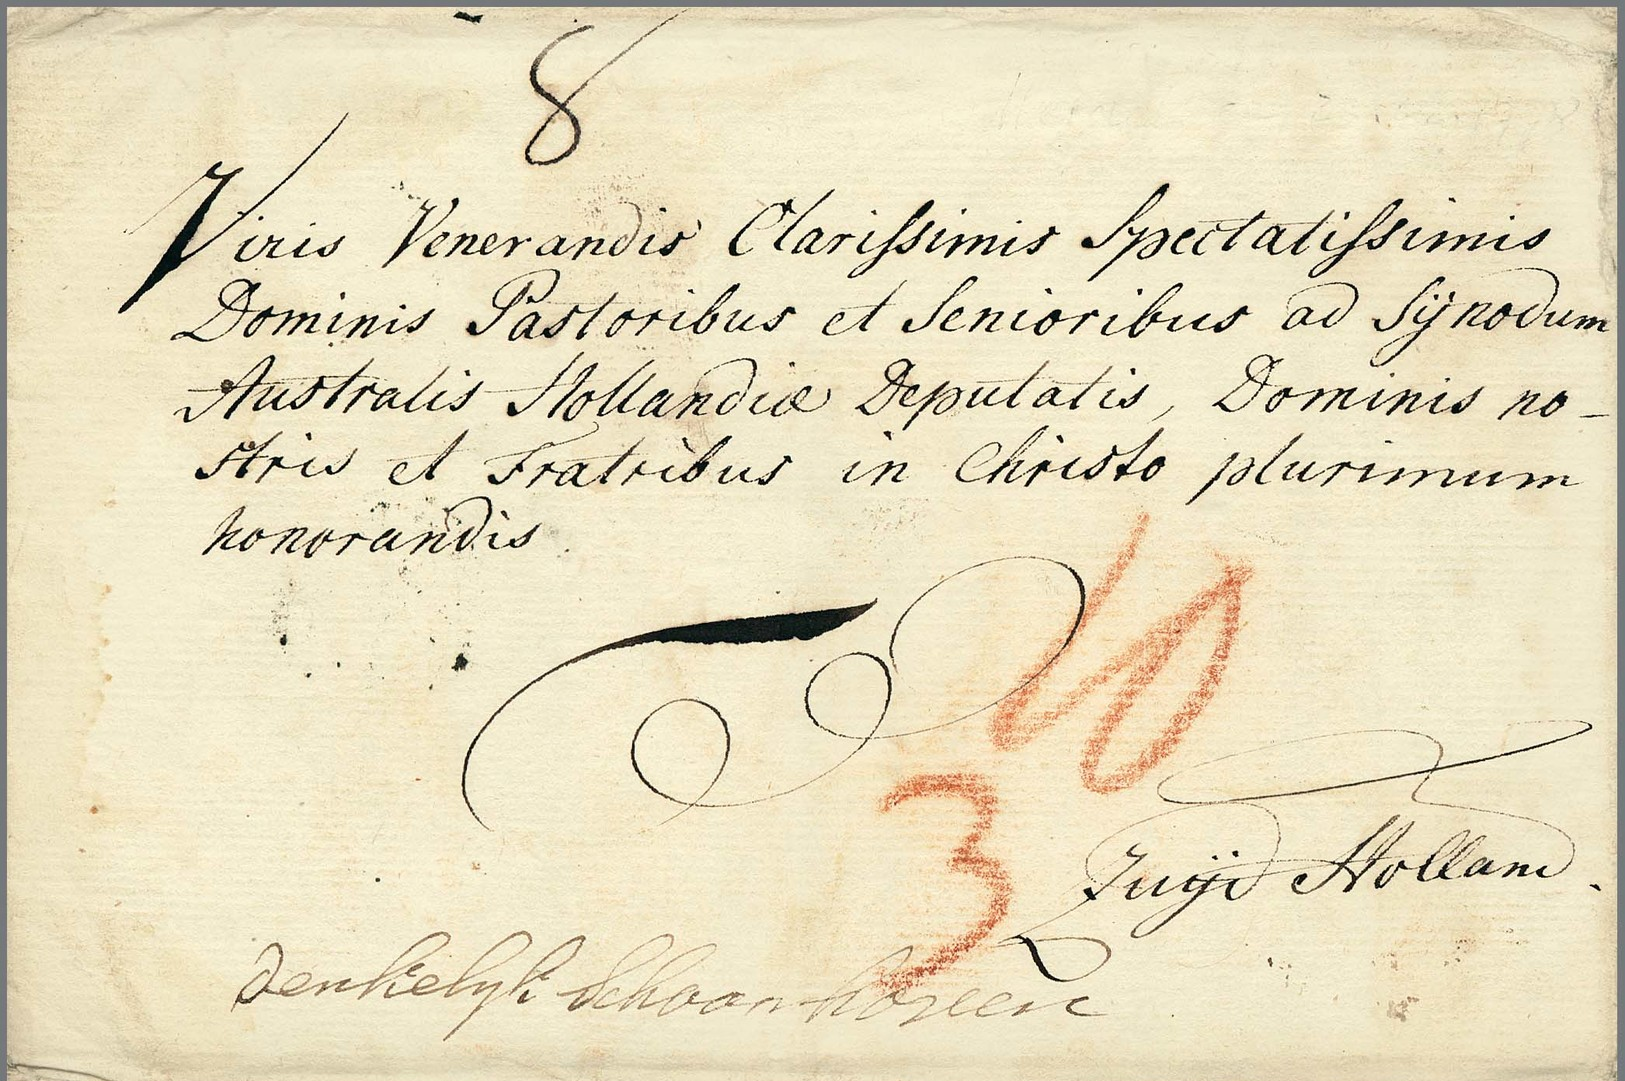 8
Viris Venerandis Clarissimis Spectatissimis
Dominis Pastoribus et Senioribus ad Sÿnodum
Australis Hollandiæ Deputatis, Dominis no-
stris et Fratribus in Christo plurimum
honorandis
10
3
Zuÿd Holland.
denkelyk Schoonhoven